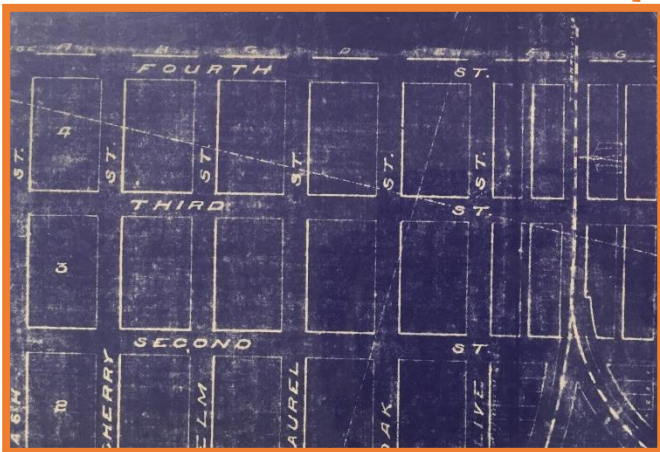 A B C D E F G
FOURTH ST.
4
ST. ST. ST. ST. ST. ST.
THIRD ST.
3
SECOND ST
2
ASH
CHERRY
ELM
LAUREL
OAK
LIVE